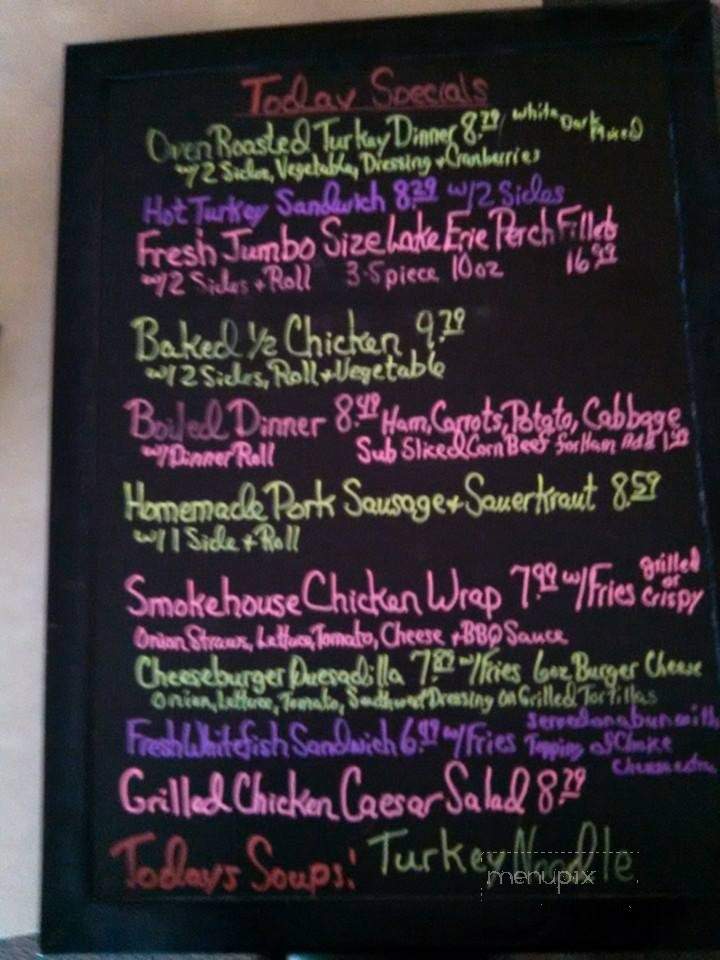 Today Specials
Oven Roasted Turkey Dinner 8.29 White Dark Mixed
w/ 2 Sides, Vegetable, Dressing + Cranberries
Hot Turkey Sandwich 8.29 w/2 Sides
Fresh Jumbo Size Lake Erie Perch Fillets
w/2 Sides + Roll 3-5 piece 10oz 16.99
Baked 1/2 Chicken 9.29
w/2 Sides, Roll + Vegetable
Boiled Dinner 8.49 Ham, Carrots, Potato, Cabbage
w/Dinner Roll Sub Sliced Corn Beef for Ham Add 1.50
Homemade Pork Sausage + Sauerkraut 8.59
w/ 1 Side + Roll
Smokehouse Chicken Wrap 7.99 w/Fries grilled or Crispy
Onion Straws, Lettuce, Tomato, Cheese + BBQ Sauce
Cheeseburger Quesadilla 7.89 w/Fries 6oz Burger Cheese
Onion, Lettuce, Tomato, Southwest Dressing on Grilled Tortillas
Fresh Whitefish Sandwich 6.99 w/Fries served on a bun with Topping of Choice Cheese extra
Grilled Chicken Caesar Salad 8.29
Today's Soups! Turkey Noodle
menupix